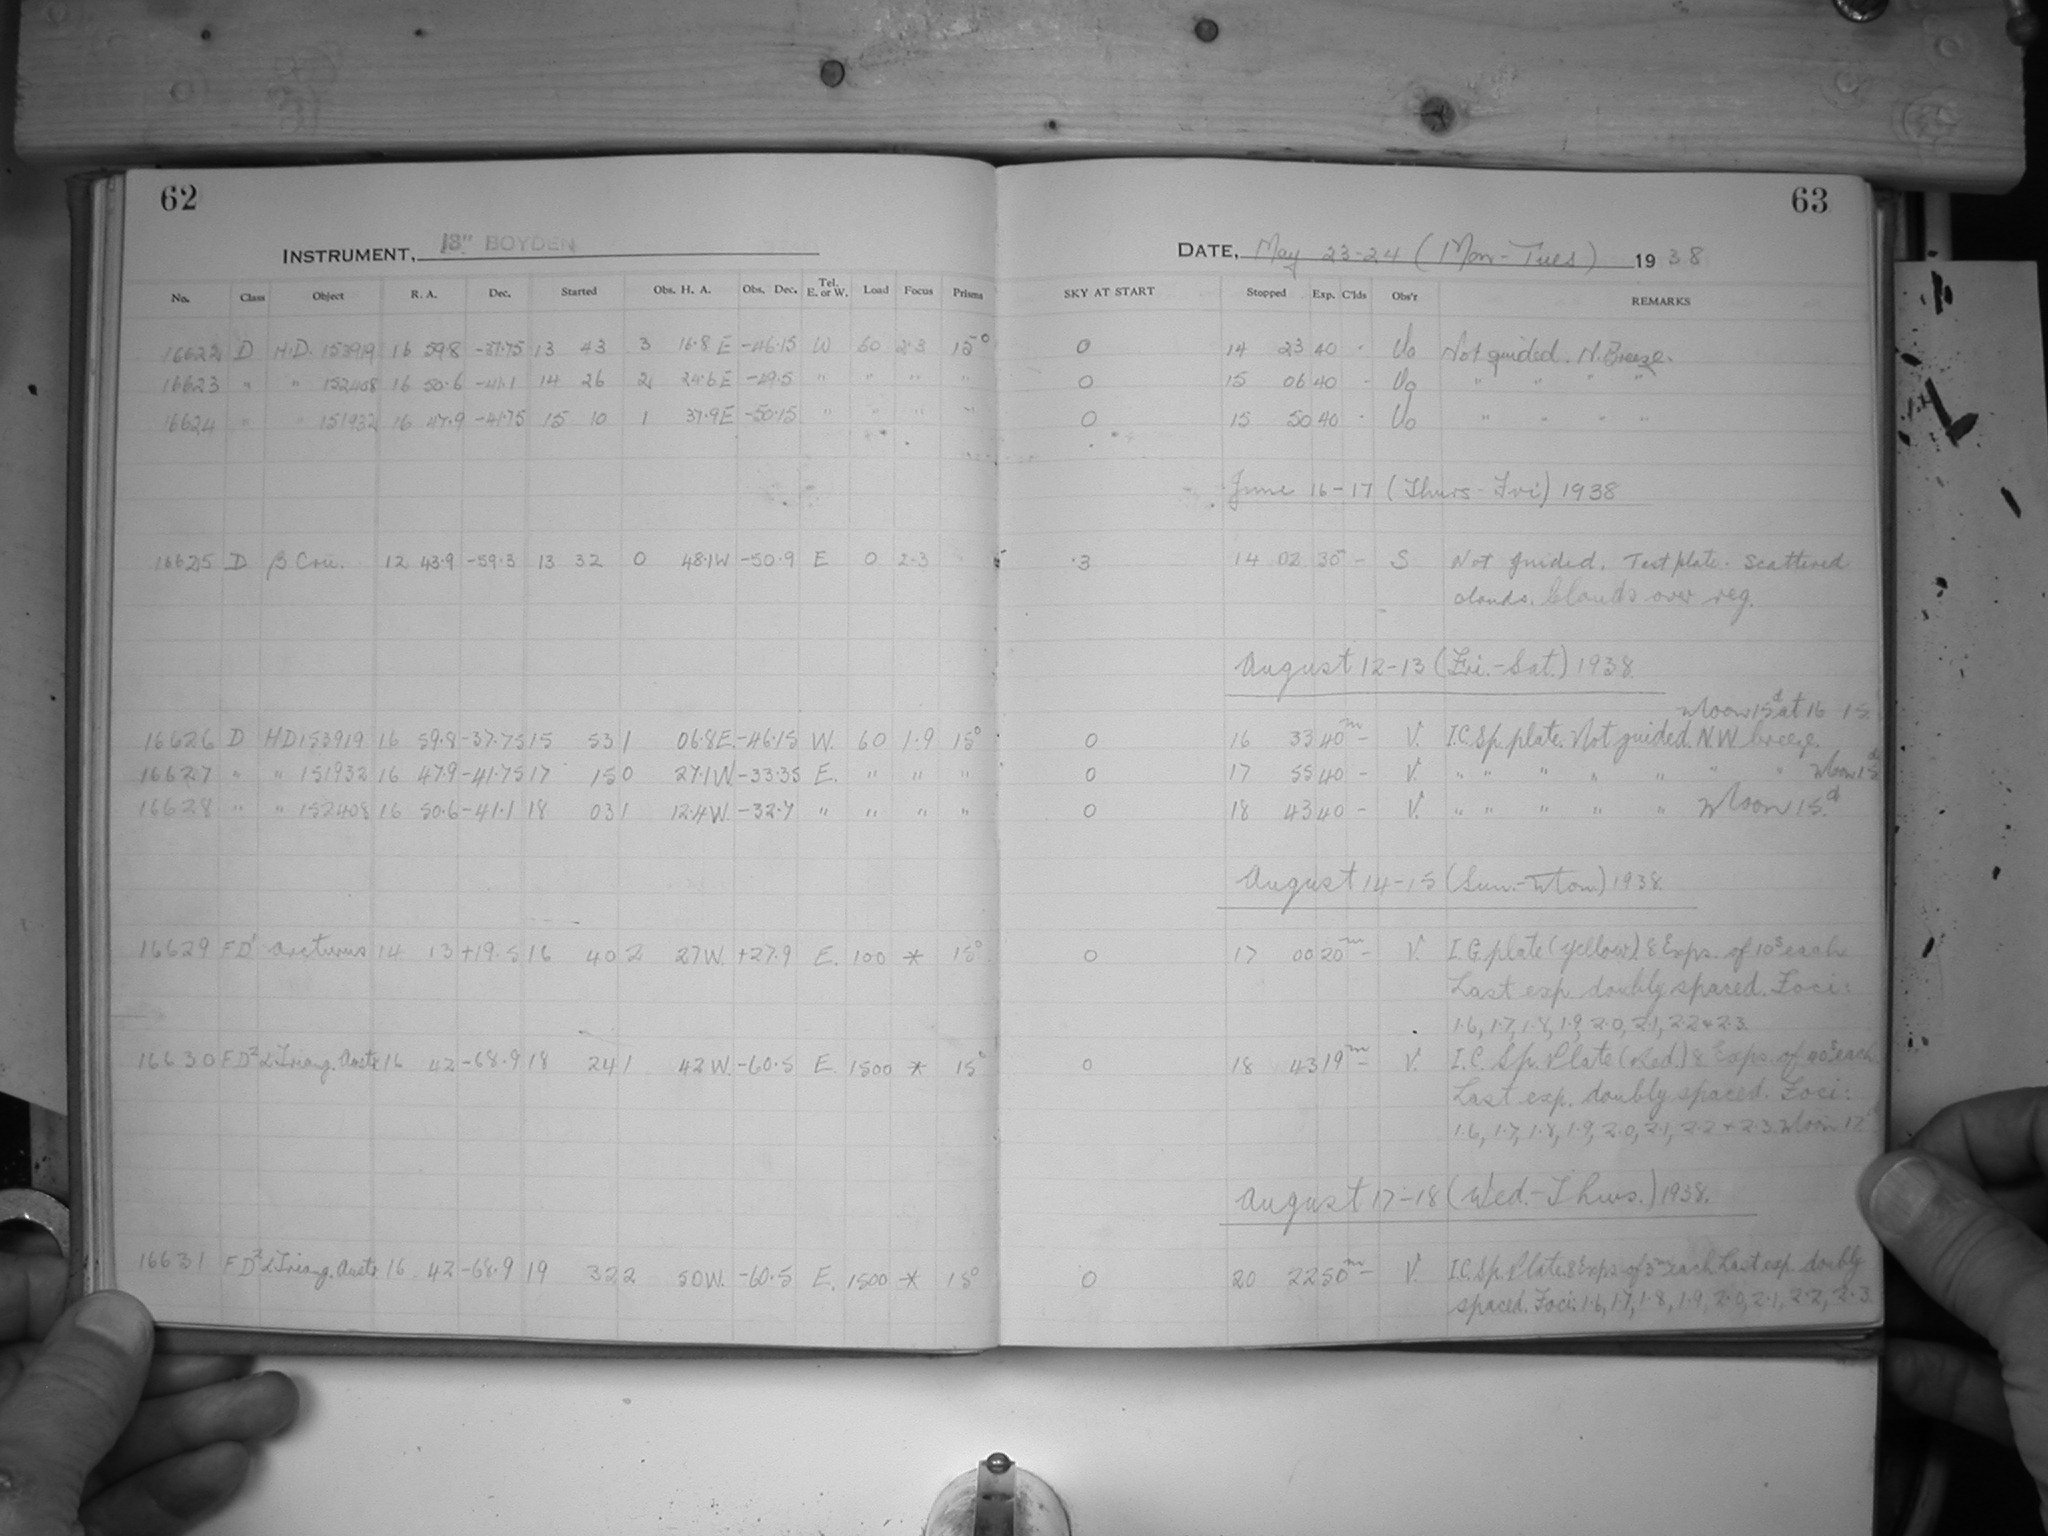 62
63
INSTRUMENT, 13" BOYDEN
DATE, May 23-24 (Mon-Tues) 1938
No. Class Object R. A. Dec. Started Obs. H. A. Obs. Dec. Tel. E. or W. Load Focus Prisms SKY AT START Stopped Exp. C'lds Obs'r REMARKS
16622 D H.D. 153919 16 59.8 -37.75 13 43 3 16.8 E -46.15 W 60 2.3 15° 0 14 23 40 - Uo Not guided. N. Breeze.
16623 " " 152408 16 50.6 -41.1 14 26 2 24.6 E -49.5 " " " " 0 15 06 40 - Uo " " " "
16624 " " 151932 16 47.9 -41.75 15 10 1 37.9 E -50.15 " " " " 0 15 50 40 - Uo " " " "
June 16-17 (Thurs-Fri) 1938
16625 D β Cru. 12 43.9 -59.3 13 32 0 48.1 W -50.9 E 0 2.3 .3 14 02 30 - S Not guided. Test plate. Scattered
clouds. Clouds over reg.
August 12-13 (Fri.-Sat.) 1938.
Moon 15d at 16 15.
16626 D HD 153919 16 59.8 -37.75 15 53 1 06.8 E. -46.15 W. 60 1.9 15° 0 16 33 40m - V. I.C. Sp. plate. Not guided. N.W. breeze.
16627 " " 151932 16 47.9 -41.75 17 15 0 27.1 W -33.35 E. " " " 0 17 55 40 - V. " " " " " " " Moon 15d
16628 " " 152408 16 50.6 -41.1 18 03 1 12.4 W. -32.7 " " " " 0 18 43 40 - V. " " " " " Moon 15d.
August 14-15 (Sun.-Mon.) 1938.
16629 FD' Arcturus 14 13 +19.5 16 40 2 27 W. +27.9 E. 100 * 15° 0 17 00 20m - V. I.G. plate (yellow) 8 Exps. of 10s each
Last exp. doubly spaced. Foci:
1.6, 1.7, 1.8, 1.9, 2.0, 2.1, 2.2 + 2.3.
16630 FD² α Triang. Austr 16 42 -68.9 18 24 1 42 W. -60.5 E. 1500 * 15° 0 18 43 19m - V. I.C. Sp. Plate (Red.) 8 Exps. of 40s each
Last exp. doubly spaced. Foci:
1.6, 1.7, 1.8, 1.9, 2.0, 2.1, 2.2 + 2.3. Moon 12
August 17-18 (Wed.-Thurs.) 1938.
16631 FD² α Triang. Austr 16 42 -68.9 19 32 2 50 W. -60.5 E. 1500 * 15° 0 20 22 50m - V. I.C. Sp. Plate. 8 Exps. of 5m each Last exp. doubly
spaced. Foci: 1.6, 1.7, 1.8, 1.9, 2.0, 2.1, 2.2, 2.3